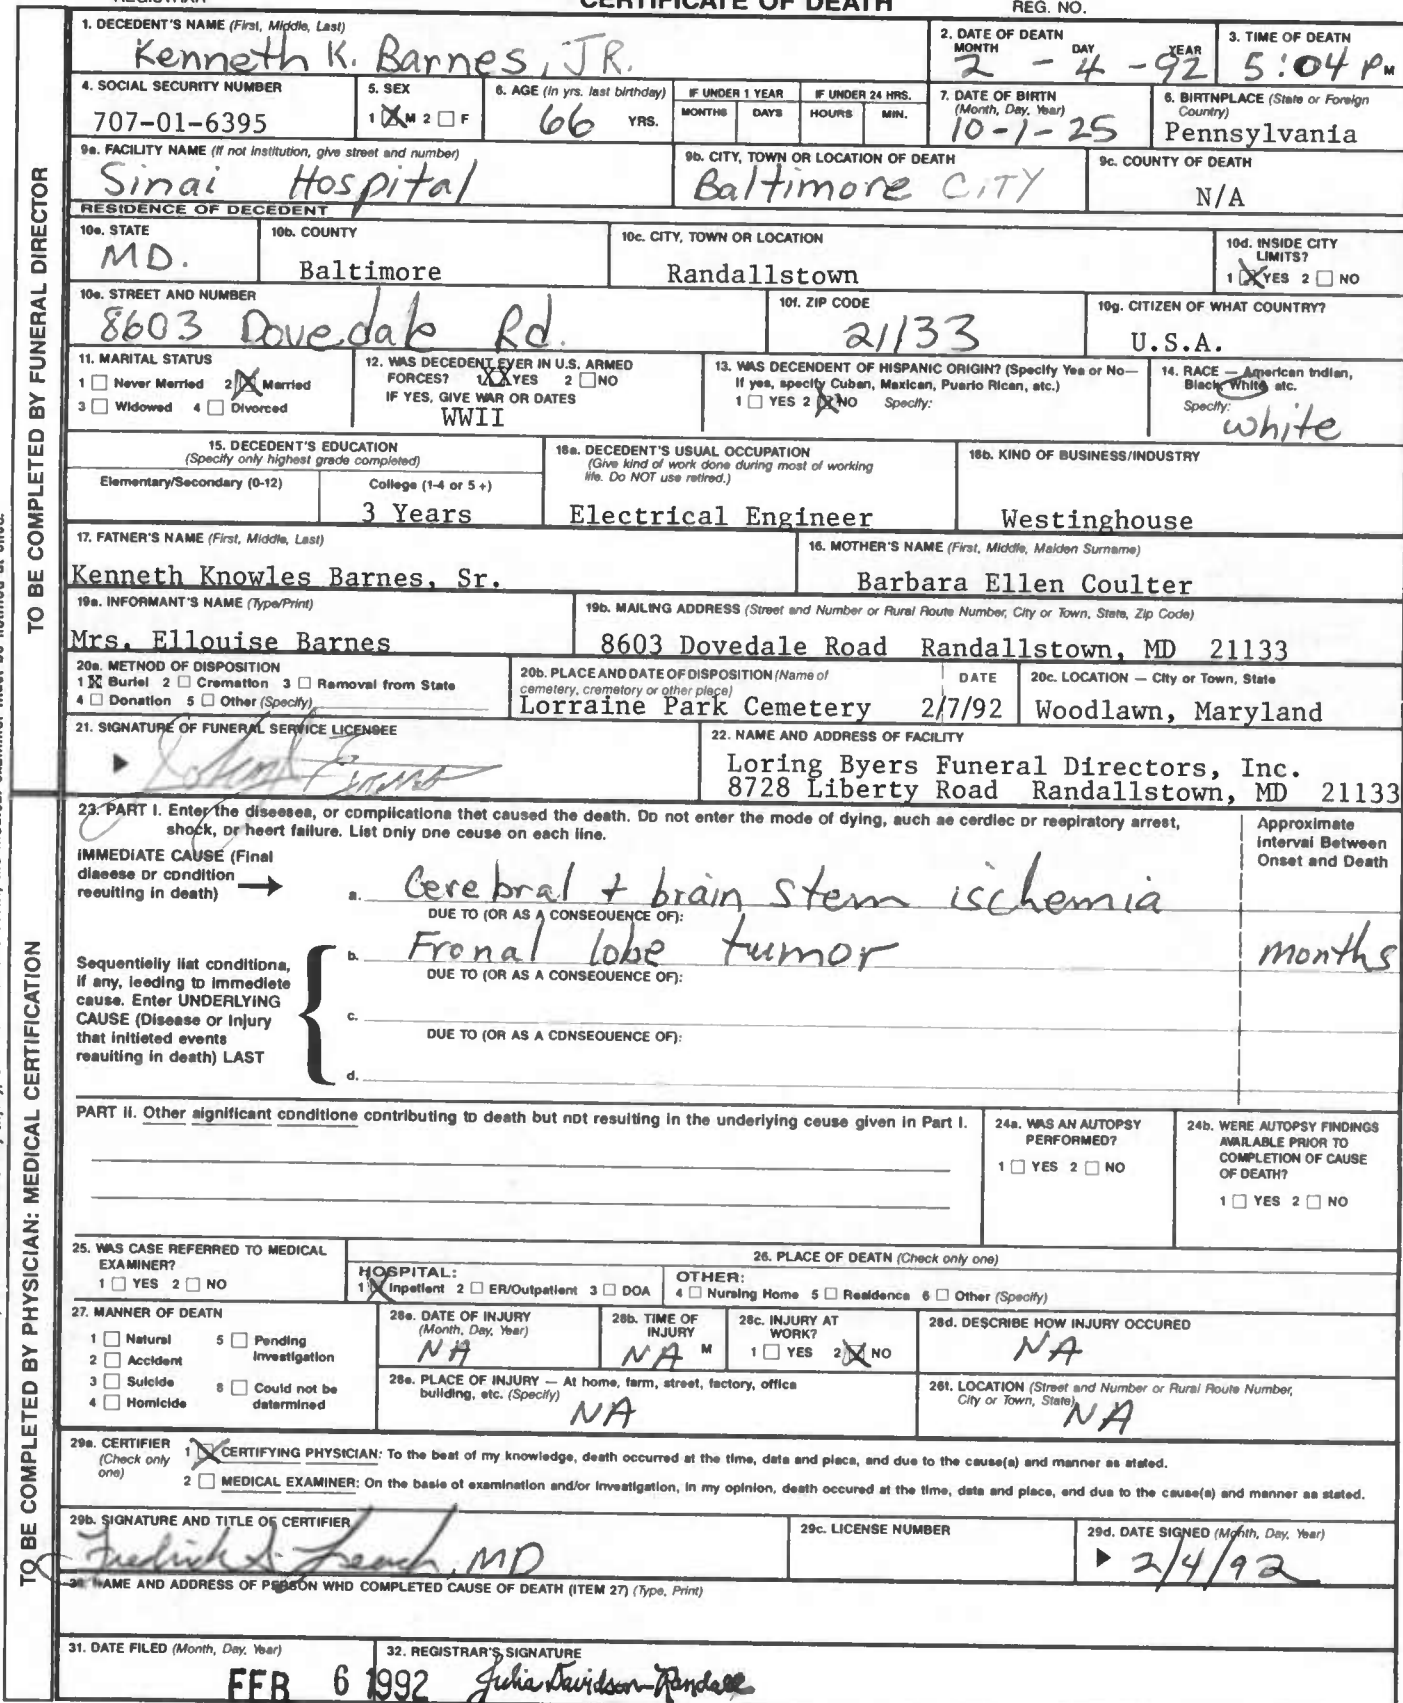 CERTIFICATE OF DEATH
REG. NO.
1. DECEDENT'S NAME (First, Middle, Last)
Kenneth K. Barnes, JR.
2. DATE OF DEATH
MONTH DAY YEAR
2 - 4 - 92
3. TIME OF DEATH
5:04 P M
4. SOCIAL SECURITY NUMBER
707-01-6395
5. SEX
1 M 2 F
6. AGE (In yrs. last birthday)
66 YRS.
IF UNDER 1 YEAR
MONTHS DAYS
IF UNDER 24 HRS.
HOURS MIN.
7. DATE OF BIRTH
(Month, Day, Year)
10-1-25
8. BIRTHPLACE (State or Foreign
Country)
Pennsylvania
9a. FACILITY NAME (If not institution, give street and number)
Sinai Hospital
9b. CITY, TOWN OR LOCATION OF DEATH
Baltimore CITY
9c. COUNTY OF DEATH
N/A
RESIDENCE OF DECEDENT
10a. STATE
MD.
10b. COUNTY
Baltimore
10c. CITY, TOWN OR LOCATION
Randallstown
10d. INSIDE CITY
LIMITS?
1 YES 2 NO
10e. STREET AND NUMBER
8603 Dovedale Rd.
10f. ZIP CODE
21133
10g. CITIZEN OF WHAT COUNTRY?
U.S.A.
11. MARITAL STATUS
1 Never Married 2 Married
3 Widowed 4 Divorced
12. WAS DECEDENT EVER IN U.S. ARMED
FORCES? 1 YES 2 NO
IF YES, GIVE WAR OR DATES
WWII
13. WAS DECENDENT OF HISPANIC ORIGIN? (Specify Yes or No—
If yes, specify Cuban, Mexican, Puerto Rican, etc.)
1 YES 2 NO Specify:
14. RACE — American Indian,
Black, White, etc.
Specify:
white
15. DECEDENT'S EDUCATION
(Specify only highest grade completed)
Elementary/Secondary (0-12)
College (1-4 or 5+)
3 Years
16a. DECEDENT'S USUAL OCCUPATION
(Give kind of work done during most of working
life. Do NOT use retired.)
Electrical Engineer
16b. KIND OF BUSINESS/INDUSTRY
Westinghouse
17. FATHER'S NAME (First, Middle, Last)
Kenneth Knowles Barnes, Sr.
18. MOTHER'S NAME (First, Middle, Maiden Surname)
Barbara Ellen Coulter
19a. INFORMANT'S NAME (Type/Print)
Mrs. Ellouise Barnes
19b. MAILING ADDRESS (Street and Number or Rural Route Number, City or Town, State, Zip Code)
8603 Dovedale Road Randallstown, MD 21133
20a. METHOD OF DISPOSITION
1 X Burial 2 Cremation 3 Removal from State
4 Donation 5 Other (Specify)
20b. PLACE AND DATE OF DISPOSITION (Name of
cemetery, crematory or other place)
DATE
Lorraine Park Cemetery 2/7/92
20c. LOCATION — City or Town, State
Woodlawn, Maryland
21. SIGNATURE OF FUNERAL SERVICE LICENSEE
22. NAME AND ADDRESS OF FACILITY
Loring Byers Funeral Directors, Inc.
8728 Liberty Road Randallstown, MD 21133
TO BE COMPLETED BY FUNERAL DIRECTOR
23. PART I. Enter the diseases, or complications that caused the death. Do not enter the mode of dying, such as cardiac or respiratory arrest,
shock, or heart failure. List only one cause on each line.
Approximate
Interval Between
Onset and Death
IMMEDIATE CAUSE (Final
disease or condition
resulting in death)
a. Cerebral + brain stem ischemia
DUE TO (OR AS A CONSEQUENCE OF):
b. Fronal lobe tumor
months
DUE TO (OR AS A CONSEQUENCE OF):
Sequentially list conditions,
if any, leading to immediate
cause. Enter UNDERLYING
CAUSE (Disease or Injury
that initiated events
resulting in death) LAST
c.
DUE TO (OR AS A CONSEQUENCE OF):
d.
PART II. Other significant conditions contributing to death but not resulting in the underlying cause given in Part I.
24a. WAS AN AUTOPSY
PERFORMED?
1 YES 2 NO
24b. WERE AUTOPSY FINDINGS
AVAILABLE PRIOR TO
COMPLETION OF CAUSE
OF DEATH?
1 YES 2 NO
25. WAS CASE REFERRED TO MEDICAL
EXAMINER?
1 YES 2 NO
26. PLACE OF DEATH (Check only one)
HOSPITAL:
1 Inpatient 2 ER/Outpatient 3 DOA
OTHER:
4 Nursing Home 5 Residence 6 Other (Specify)
27. MANNER OF DEATH
1 Natural 5 Pending
Investigation
2 Accident
3 Suicide 6 Could not be
determined
4 Homicide
28a. DATE OF INJURY
(Month, Day, Year)
NA
28b. TIME OF
INJURY
NA M
28c. INJURY AT
WORK?
1 YES 2 NO
28d. DESCRIBE HOW INJURY OCCURED
NA
28e. PLACE OF INJURY — At home, farm, street, factory, office
building, etc. (Specify)
NA
28f. LOCATION (Street and Number or Rural Route Number,
City or Town, State)
NA
29a. CERTIFIER
(Check only
one)
1 CERTIFYING PHYSICIAN: To the best of my knowledge, death occurred at the time, date and place, and due to the cause(s) and manner as stated.
2 MEDICAL EXAMINER: On the basis of examination and/or investigation, in my opinion, death occured at the time, date and place, and due to the cause(s) and manner as stated.
29b. SIGNATURE AND TITLE OF CERTIFIER
Fredrick S. Leach, MD
29c. LICENSE NUMBER
29d. DATE SIGNED (Month, Day, Year)
2/4/92
30. NAME AND ADDRESS OF PERSON WHO COMPLETED CAUSE OF DEATH (ITEM 27) (Type, Print)
31. DATE FILED (Month, Day, Year)
FEB 6 1992
32. REGISTRAR'S SIGNATURE
Julia Davidson-Randall
TO BE COMPLETED BY PHYSICIAN: MEDICAL CERTIFICATION